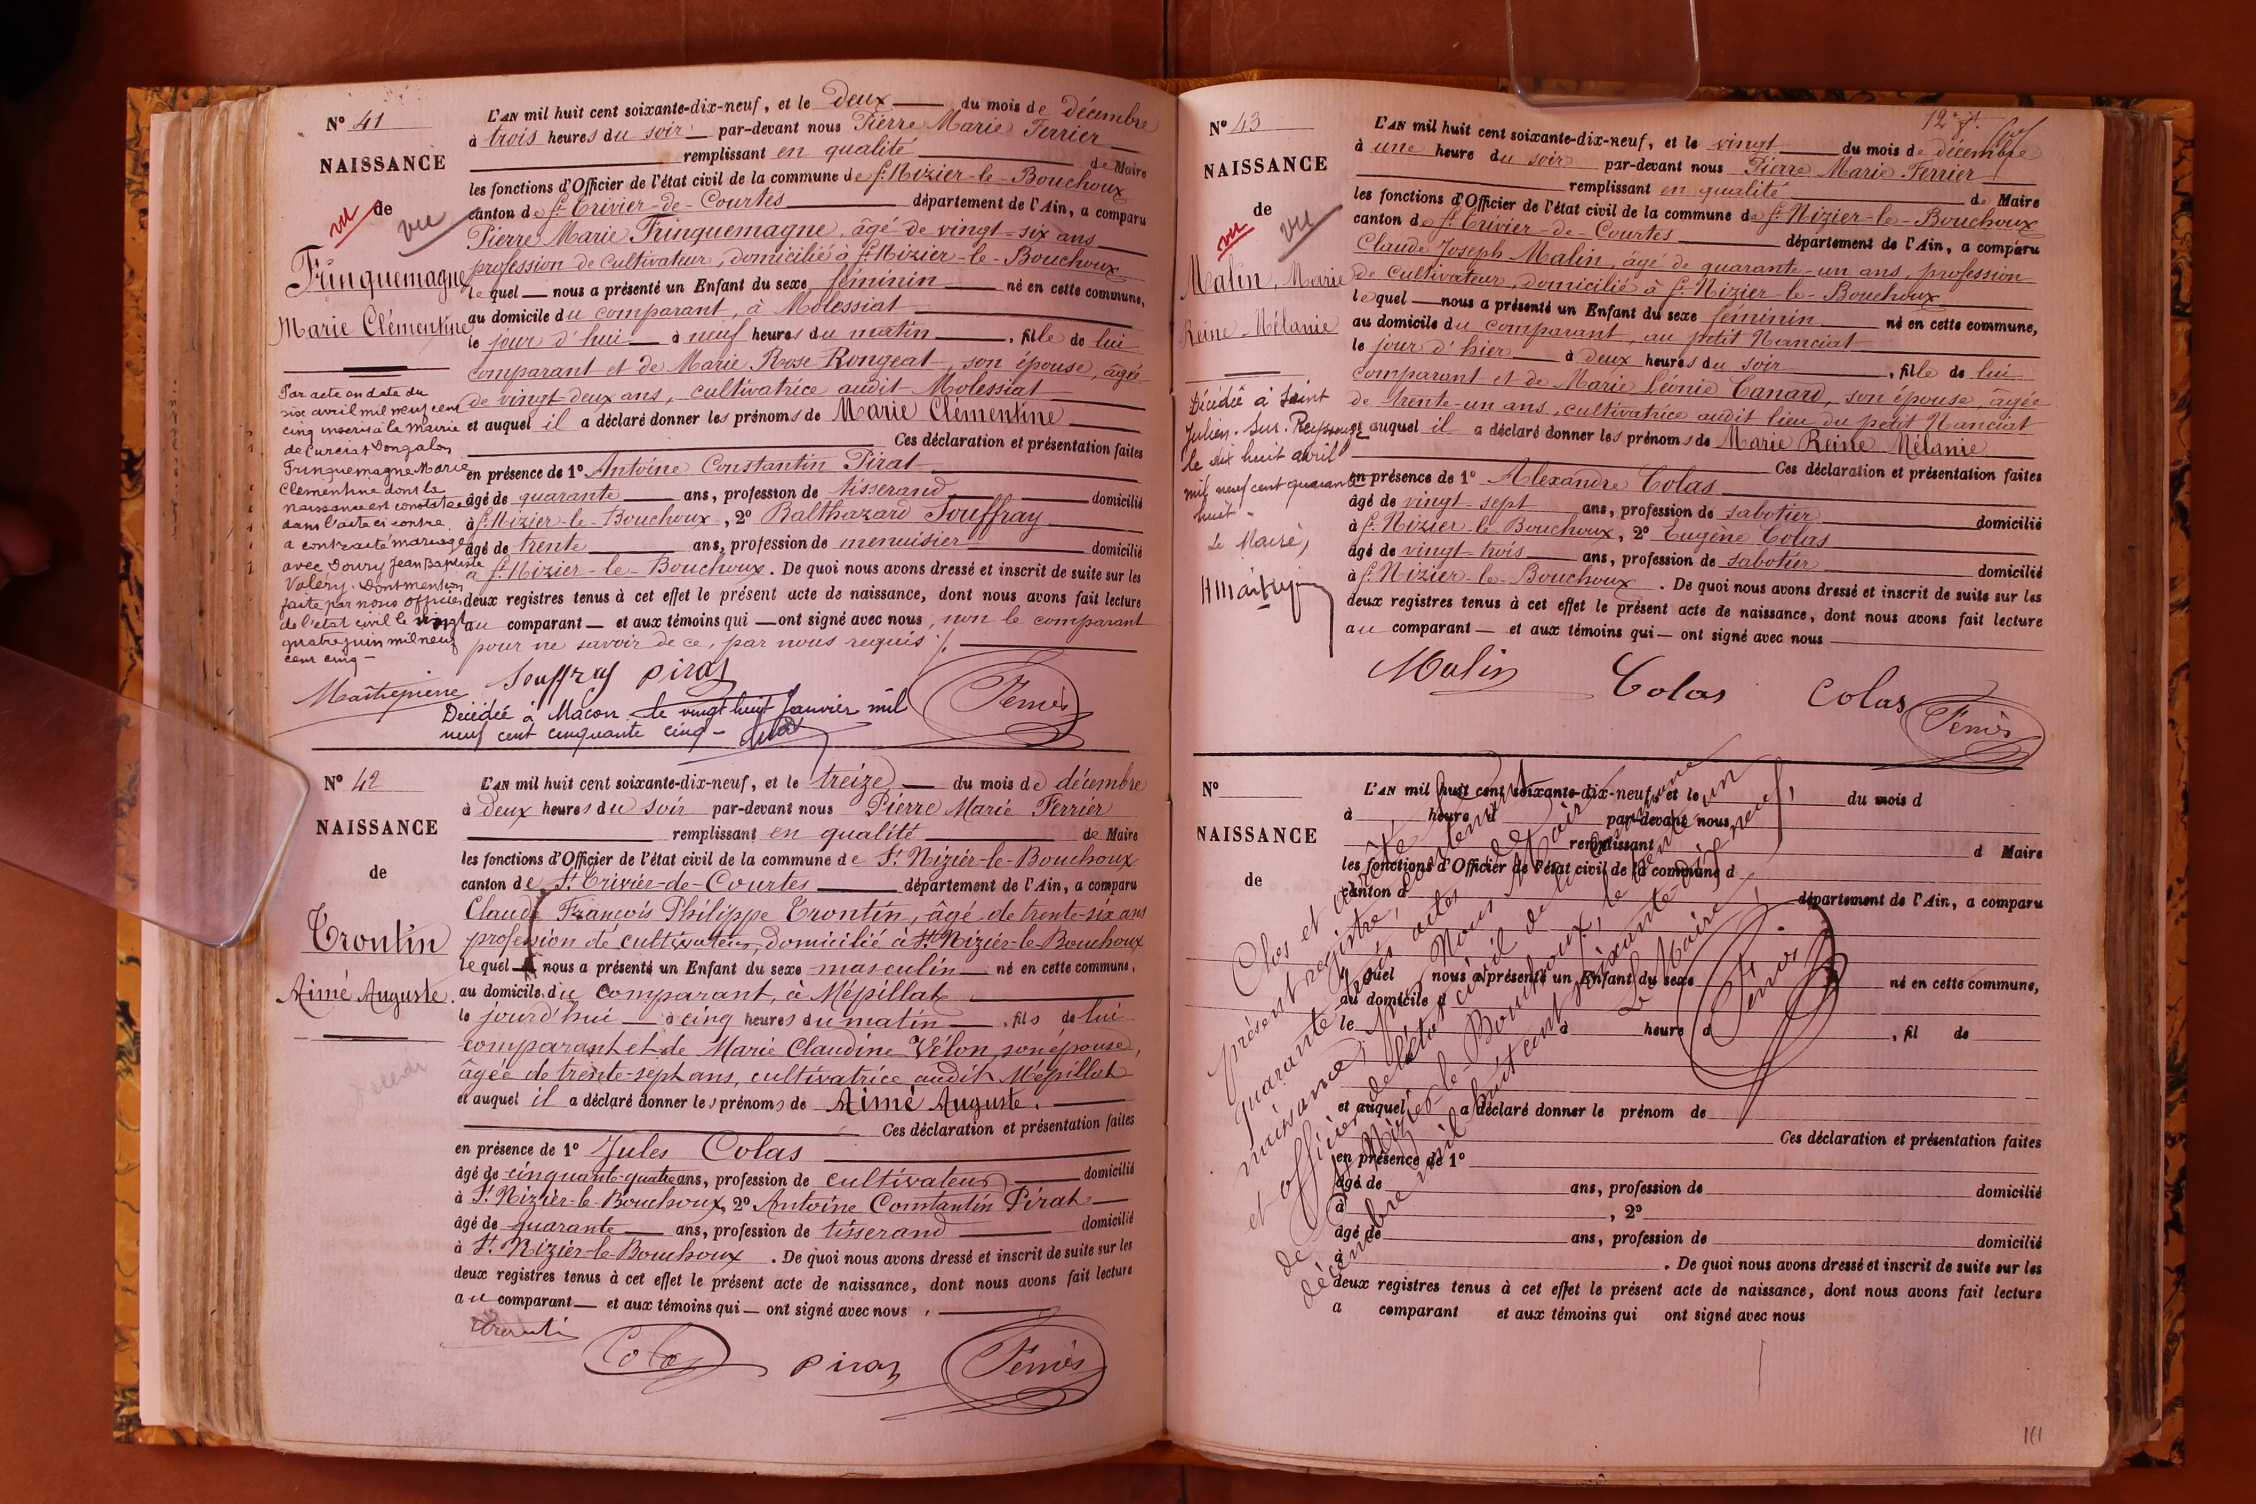 N° 41
NAISSANCE
de
vu
vu
Fringuemagne
Marie Clémentine
Par acte en date du
six avril mil neuf cent
cinq inscrit à la Mairie
de Curciat Dongalon
Fringuemagne Marie
Clémentine dont la
naissance est constatée
dans l'acte ci contre
a contracté mariage
avec Doury Jean Baptiste
Valéry. Dont mention
faite par nous officier
de l'état civil le vingt
quatre juin mil neuf
cent cinq -
Maîtrepierre
L'AN mil huit cent soixante-dix-neuf, et le deux du mois de décembre
à trois heures du soir par-devant nous Pierre Marie Ferrier
remplissant en qualité de Maire
les fonctions d'Officier de l'état civil de la commune de St Nizier-le-Bouchoux
canton de St Trivier-de-Courtes département de l'Ain, a comparu
Pierre Marie Fringuemagne, âgé de vingt-six ans
profession de cultivateur, domicilié à St Nizier-le-Bouchoux
lequel nous a présenté un Enfant du sexe féminin né en cette commune,
au domicile du comparant, à Molessiat
le jour d'hui à neuf heures du matin, fille de lui
comparant et de Marie Rose Rongeat, son épouse, âgée
de vingt-deux ans, cultivatrice audit Molessiat
et auquel il a déclaré donner les prénoms de Marie Clémentine
Ces déclaration et présentation faites
en présence de 1° Antoine Constantin Pirat
âgé de quarante ans, profession de tisserand domicilié
à St Nizier-le-Bouchoux, 2° Balthazard Souffray
âgé de trente ans, profession de menuisier domicilié
à St Nizier-le-Bouchoux. De quoi nous avons dressé et inscrit de suite sur les
deux registres tenus à cet effet le présent acte de naissance, dont nous avons fait lecture
au comparant et aux témoins qui ont signé avec nous, non le comparant
pour ne savoir de ce, par nous requis ./.
Souffray Pirat Ferrier
Décédée à Macon le vingt huit Janvier mil
neuf cent cinquante cinq -
N° 42
NAISSANCE
de
Trontin
Aimé Auguste.
L'AN mil huit cent soixante-dix-neuf, et le treize du mois de décembre
à deux heures du soir par-devant nous Pierre Marie Ferrier
remplissant en qualité de Maire
les fonctions d'Officier de l'état civil de la commune de St Nizier-le-Bouchoux
canton de St Trivier-de-Courtes département de l'Ain, a comparu
Claude François Philippe Trontin, âgé de trente-six ans
profession de cultivateur, domicilié à St Nizier-le-Bouchoux
lequel nous a présenté un Enfant du sexe masculin né en cette commune,
au domicile du comparant, à Mépillat
le jourd'hui à cinq heures du matin, fils de lui
comparant et de Marie Claudine Vélon, son épouse,
âgée de trente-sept ans, cultivatrice audit Mépillat
et auquel il a déclaré donner les prénoms de Aimé Auguste.
Ces déclaration et présentation faites
en présence de 1° Jules Colas
âgé de cinquante-quatre ans, profession de cultivateur domicilié
à St Nizier-le-Bouchoux, 2° Antoine Constantin Pirat
âgé de quarante ans, profession de tisserand domicilié
à St Nizier-le-Bouchoux. De quoi nous avons dressé et inscrit de suite sur les
deux registres tenus à cet effet le présent acte de naissance, dont nous avons fait lecture
au comparant et aux témoins qui ont signé avec nous.
Trontin Colas Pirat Ferrier
12e ft
N° 43
NAISSANCE
de
vu
vu
Malin, Marie
Reine Mélanie
Décédée à Saint
Julien-sur-Reyssouze
le dix huit avril
mil neuf cent quarante
huit -
Le Maire,
L'AN mil huit cent soixante-dix-neuf, et le vingt du mois de décembre
à une heure du soir par-devant nous Pierre Marie Ferrier
remplissant en qualité de Maire
les fonctions d'Officier de l'état civil de la commune de St Nizier-le-Bouchoux
canton de St Trivier-de-Courtes département de l'Ain, a comparu
Claude Joseph Malin, âgé de quarante-un ans, profession
de cultivateur, domicilié à St Nizier-le-Bouchoux
lequel nous a présenté un Enfant du sexe féminin né en cette commune,
au domicile du comparant, au petit Nanciat
le jour d'hier à deux heures du soir, fille de lui
comparant et de Marie Léonie Canard, son épouse, âgée
de trente-un ans, cultivatrice audit lieu du petit Nanciat
et auquel il a déclaré donner les prénoms de Marie Reine Mélanie
Ces déclaration et présentation faites
en présence de 1° Alexandre Colas
âgé de vingt-sept ans, profession de sabotier domicilié
à St Nizier-le-Bouchoux, 2° Eugène Colas
âgé de vingt-trois ans, profession de sabotier domicilié
à St Nizier-le-Bouchoux. De quoi nous avons dressé et inscrit de suite sur les
deux registres tenus à cet effet le présent acte de naissance, dont nous avons fait lecture
au comparant et aux témoins qui ont signé avec nous
Malin Colas Colas Ferrier
N°
NAISSANCE
de
L'AN mil huit cent soixante-dix-neuf, et le du mois d
à heure d par-devant nous
remplissant d Maire
les fonctions d'Officier de l'état civil de la commune d
canton d département de l'Ain, a comparu
le quel nous a présenté un Enfant du sexe né en cette commune,
au domicile d
le à heure d, fil de
et auquel a déclaré donner le prénom de
Ces déclaration et présentation faites
en présence de 1°
âgé de ans, profession de domicilié
à , 2°
âgé de ans, profession de domicilié
à . De quoi nous avons dressé et inscrit de suite sur les
deux registres tenus à cet effet le présent acte de naissance, dont nous avons fait lecture
a comparant et aux témoins qui ont signé avec nous
Clos et arrêté le
présent registre, contenant
quarante-trois actes de
naissance, par Nous Maire
et officier de l'état civil de la commune
de St Nizier-le-Bouchoux, le trente-un
décembre mil huit cent soixante-dix-neuf,
Le Maire,
Ferrier